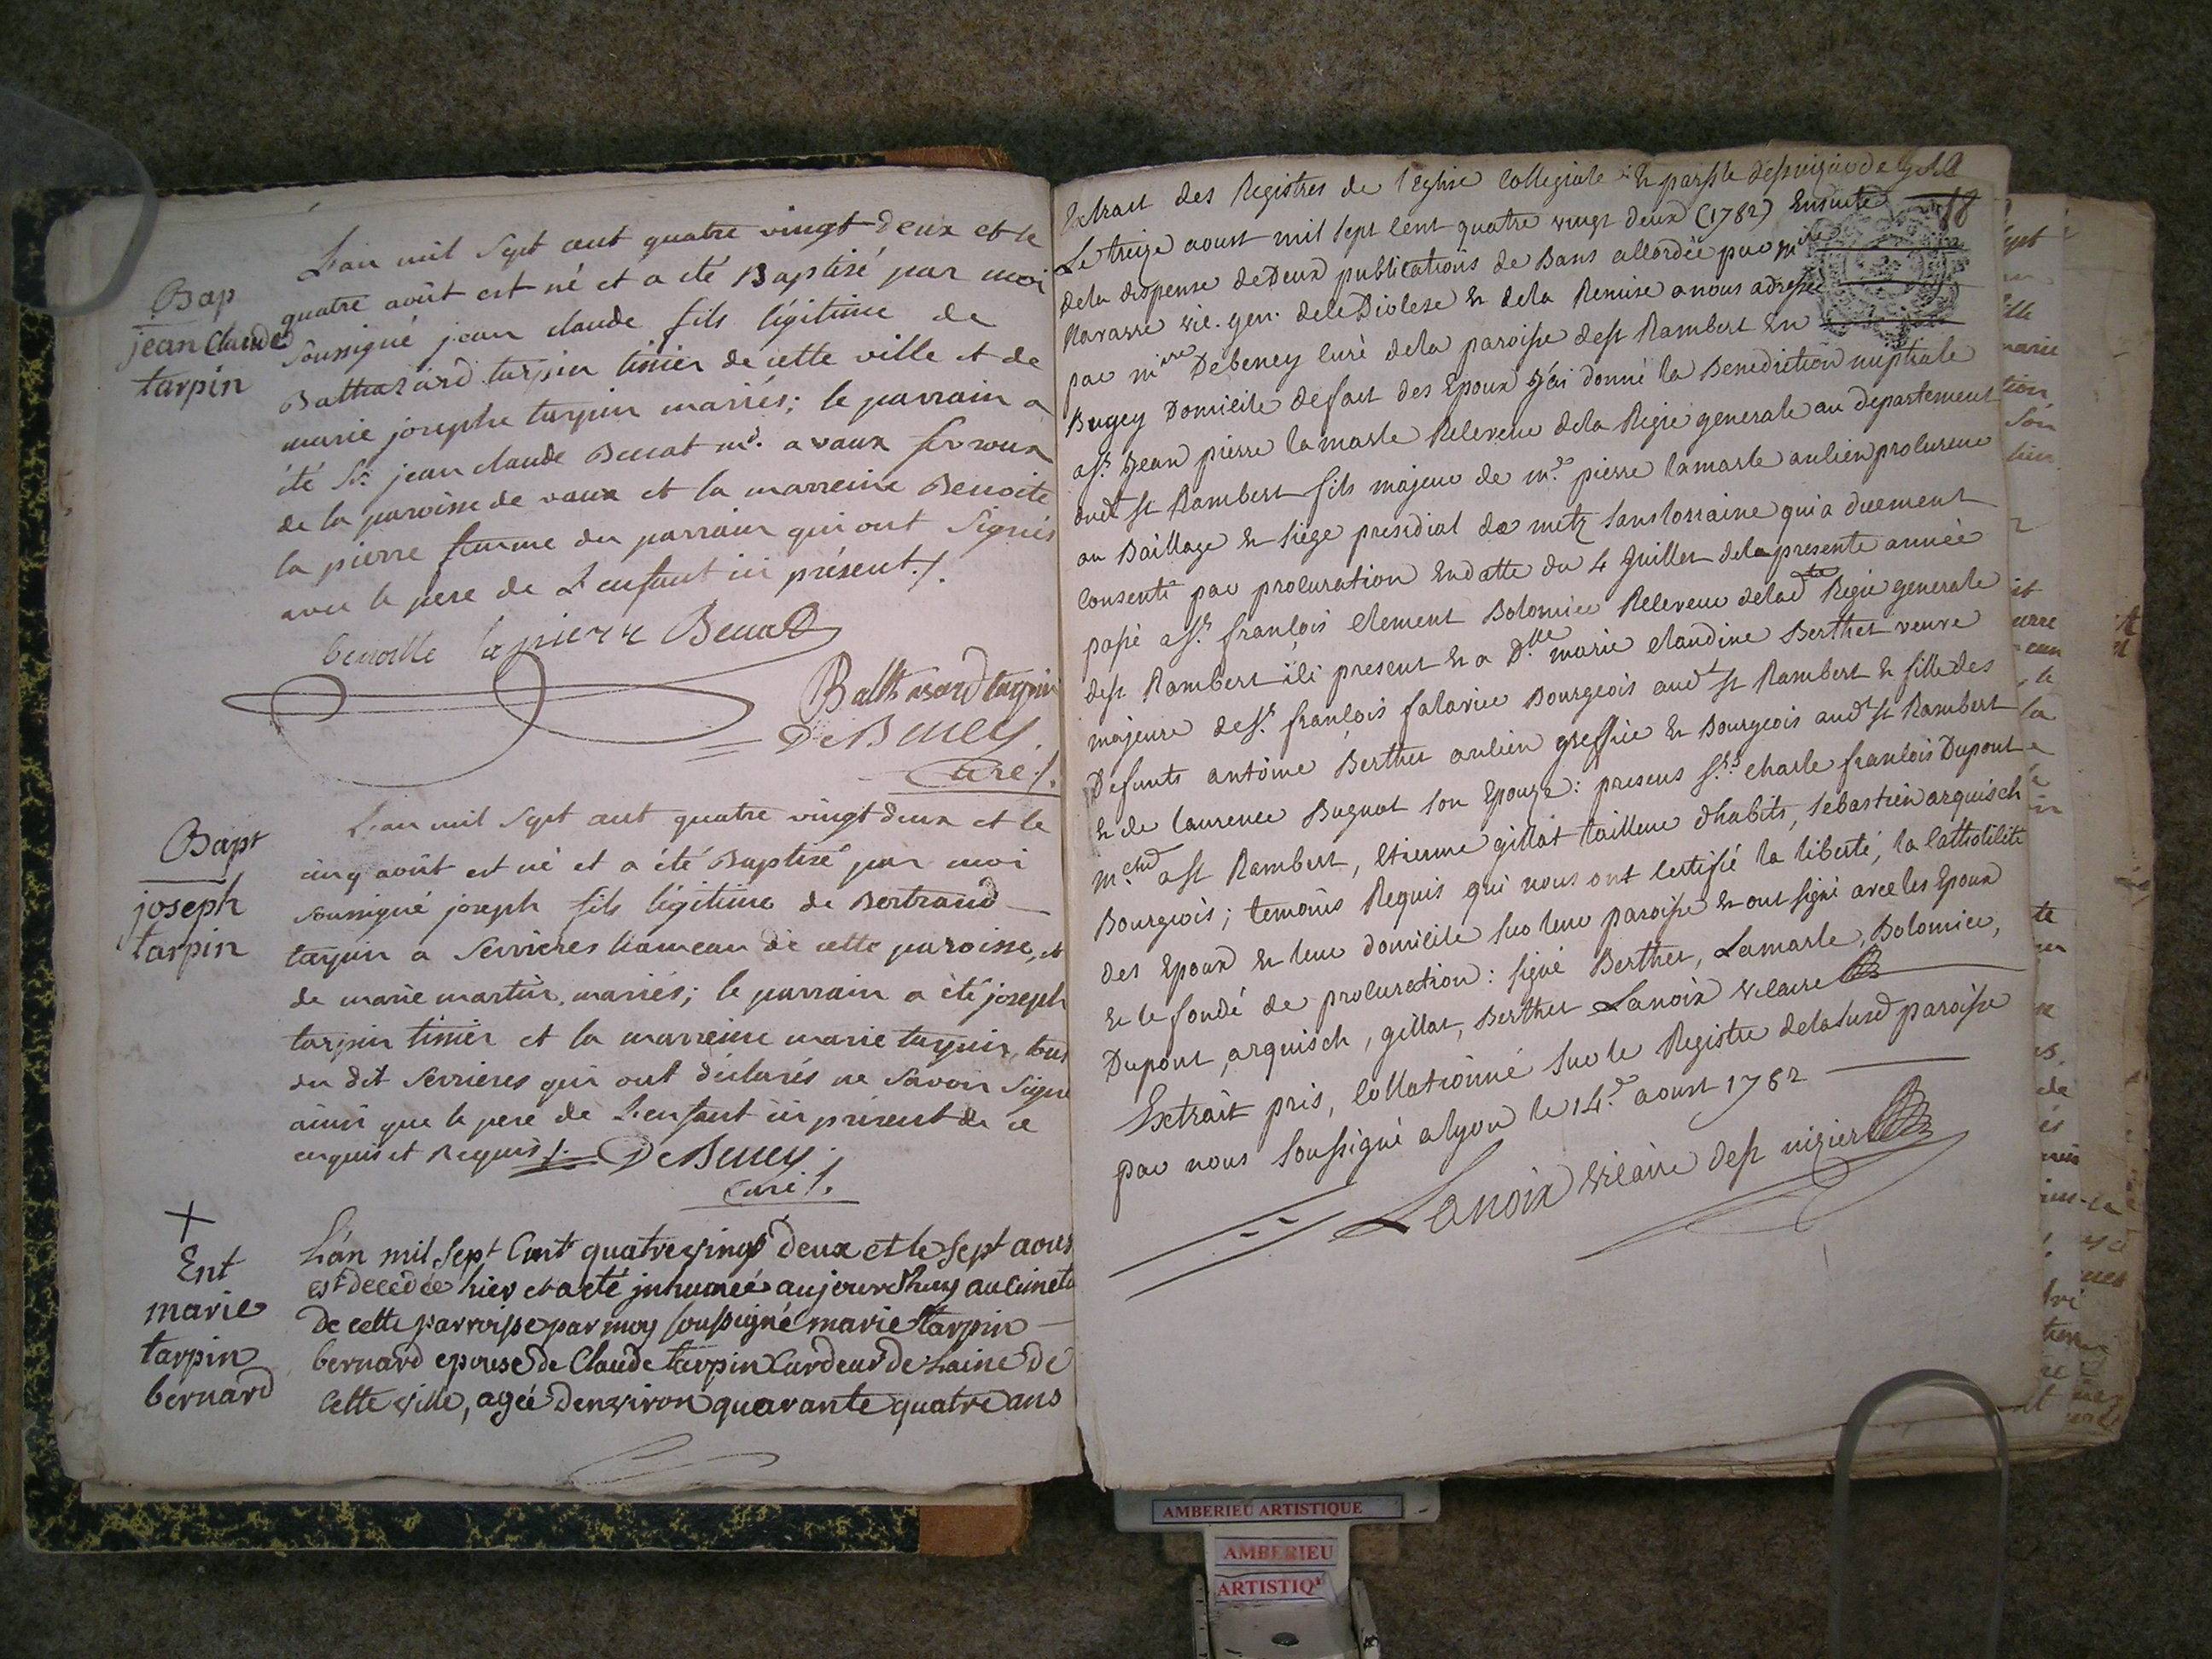 Bap
jean Claude
tarpin
L'an mil sept cent quatre vingt deux et le
quatre août est né et a été Baptisé par moi
soussigné jean claude fils légitime de
Balthazard tarpin tisier de cette ville et de
marie josephe tarpin mariés; le parrain a
été Sr jean claude Benat md. a vaux
de la paroisse de vaux et la marreine Benoite
la pierre femme du parrain qui ont signés
avec le pere de L'enfant ici présent./.
benoitte lapierre Benat
Balthasard tarpin
DeBeney
Curé /.
Bapt
joseph
tarpin
L'an mil sept cent quatre vingt deux et le
cinq août est né et a été Baptisé par moi
soussigné joseph fils légitime de Bertrand
tarpin a serrieres hameau de cette paroisse, et
de marie martin mariés; le parrain a été joseph
tarpin tisier et la marreine marie tarpin, tous
du dit serrieres qui ont déclarés ne savoir signé
ainsi que le pere de L'enfant ici présent de ce
enquis et Requis /. DeBeney
Curé /.
Ent
marie
tarpin
bernard
L'an mil sept Cent quatre vingt deux et le sept aous
est decedée hier et a eté inhumeé aujourdhuy au Cimet
de cette parroisse par moy soussigné marie tarpin
bernard epouse de Claude tarpin Cardeur de Laine de
Cette ville, ageé denviron quarante quatre ans
Extrait des Registres de l'Eglise Collegiale Et parsse de st nizier de
18
Le treize aoust mil sept cent quatre vingt deux (1782) Ensuite
dela dispense de Deux publications de Bans accordée par
Navarre vic. gen. de le Diocese Et dela Remise a nous adressé
par mire Debeney curé dela paroisse de st Rambert En
Bugey Domicile de fait des Epoux J'ai donné la Benediction nuptiale
a sr Jean pierre lamarle Receveur dela Regie generale au departement
dudt st Rambert fils majeur de me pierre lamarle ancien procureur
au Baillage Et siege presidial de metz sans lorraine qui a duement
consenti par procuration En datte du 4 Juillet dela presente année
passé a sr françois Clement Bolomier Receveur de lade Regie generale
de st Rambert ici present Et a Dlle marie claudine Berthet veuve
majeure de sr françois falavier Bourgeois audt st Rambert Et fille des
Defunts antoine Berthet ancien greffier Et Bourgeois audt st Rambert
Et de laurence Bugnot son Epouze: presens srs charle francois Dupont
mchd a st Rambert, Etienne gillat tailleur d'habits, sebastien arquisch
Bourgeois; temoins Requis qui nous ont certifié la liberté, la Catholicité
des Epoux Et leur domicile sur leur paroisse Et ont signé avec les Epoux
Et le fondé de procuration: signé Berthet, Lamarle, Bolomier,
Dupont, arquisch, gillat, Berthet Lanoix vicaire
Extrait pris, Collationné sur le Registre dela susd paroisse
par nous soussigné a lyon le 14e aoust 1782
Lanoix vicaire de st nizier
AMBERIEU ARTISTIQUE
AMBERIEU
ARTISTIQ